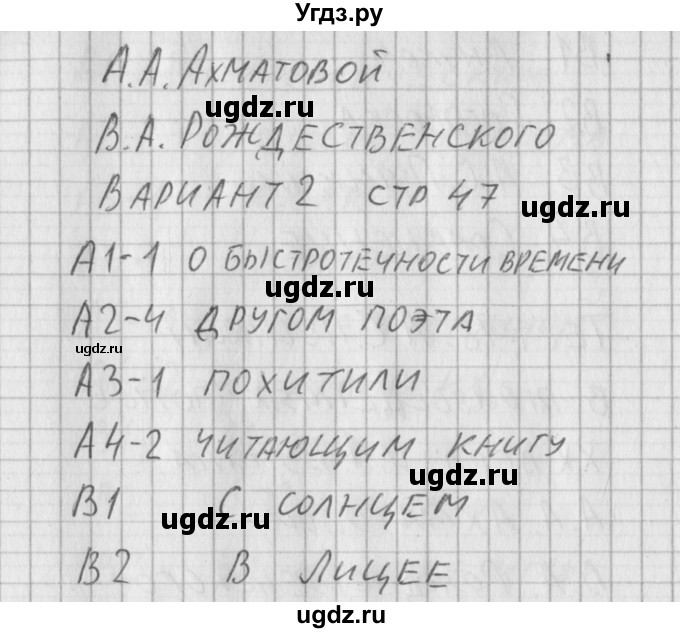 Угдз.ру
А.А. Ахматовой
ugdz.ru
В.А. Рождественского
Вариант 2 стр 47
ugdz.ru
А1-1 О быстротечности времени
ugdz.ru
А2-4 другом поэта
ugdz.ru
А3-1 похитили
А4-2 читающим книгу
ugdz.ru
В1 С солнцем
ugdz.ru
В2 В лицее
ugdz.ru